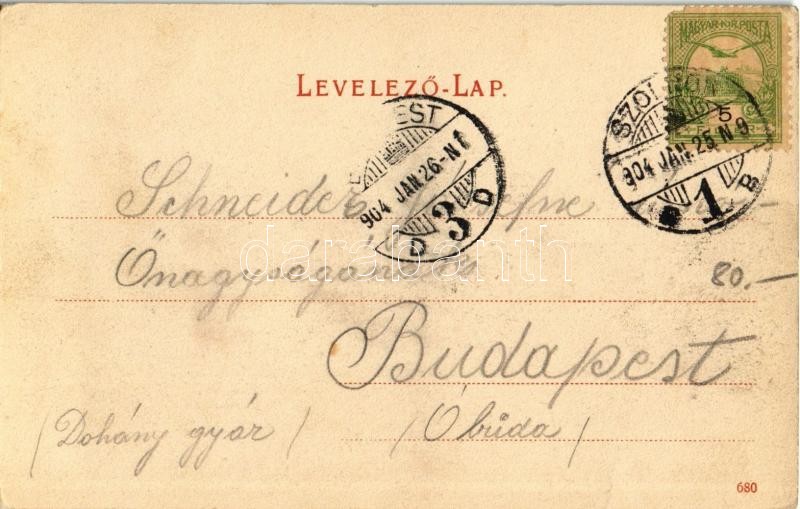 MAGYAR KIR. POSTA
5
LEVELEZŐ-LAP.
SZOLNOK
904 JAN. 25 N 9
1 B
EST
904 JAN. 26-N
D 3 D
Schneider
Önagyságának
80.-
Budapest
/Dohány gyár/ /Óbuda/
darabanth
680